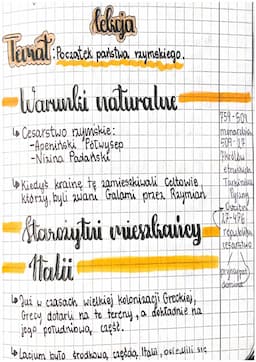 Lekcja
Temat: Początek państwa rzymskiego.
Warunki naturalne
↳ Cesarstwo rzymskie:
-Apeniński Półwysep
-Nizina Padańska
↳ Kiedyś krainę tę zamieszkiwali Celtowie
którzy byli zwani Galami przez Rzymian
Starożytni mieszkańcy
Italii
↳ Już w czasach wielkiej kolonizacji Greckiej,
Grecy dotarli na te tereny, a dokładnie na
jego południową część.
↳ Lacjum było środkową częścią Italii, osiedlili się
753-509
monarchia
509-27
7 królów
etruskich
27-476
cesarstwo